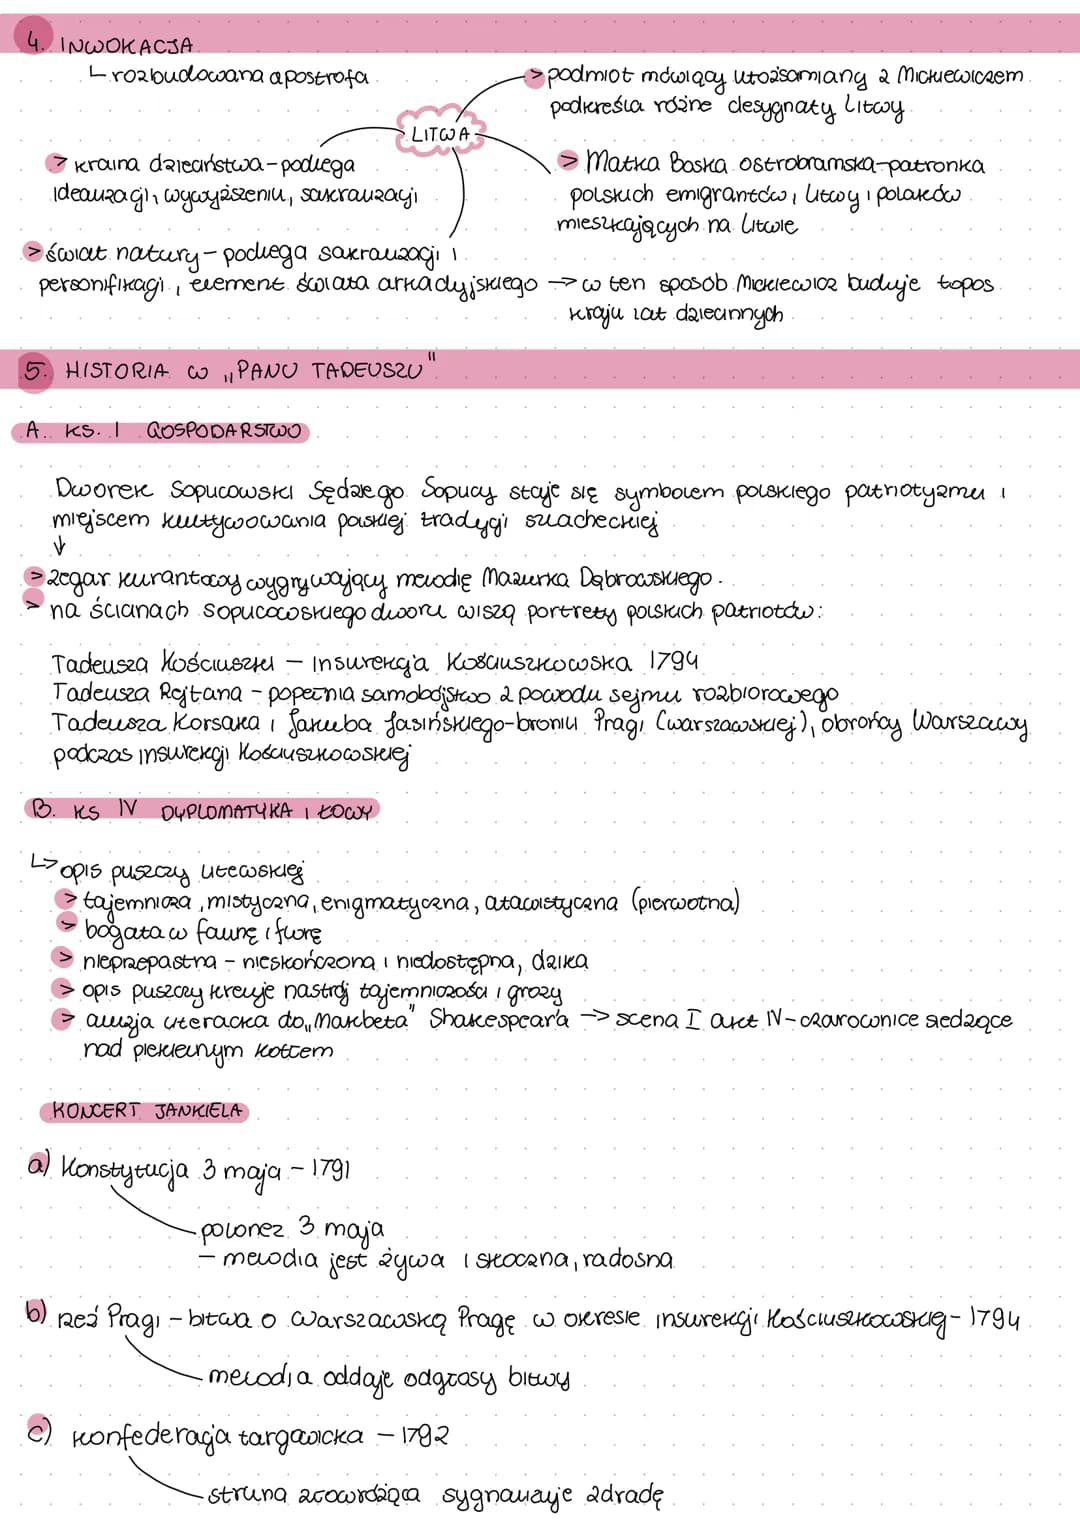 4. INWOKACJA
rozbudowana apostrofa
> podmiot mówiący utożsamiany z Mickiewiczem
podkreśla różne desygnaty Litwy
LITWA
> kraina dzieciństwa - podlega
idealizacji, wywyższeniu, sakralizacji
> Matka Boska ostrobramska - patronka
polskich emigrantów, Litwy i polaków
mieszkających na Litwie
> świat natury - podlega sakralizacji i
personifikacji, element świata arkadyjskiego → w ten sposób Mickiewicz buduje topos
kraju lat dziecinnych
5. HISTORIA W „PANU TADEUSZU"
A. KS. I GOSPODARSTWO
Dworek Soplicowski Sędziego Soplicy staje się symbolem polskiego patriotyzmu i
miejscem kultywowania polskiej tradycji szlacheckiej
↓
> zegar kurantowy wygrywający melodię Mazurka Dąbrowskiego.
> na ścianach soplicowskiego dworu wiszą portrety polskich patriotów:
Tadeusza Kościuszki - Insurekcja Kościuszkowska 1794
Tadeusza Rejtana - popełnia samobójstwo z powodu sejmu rozbiorowego
Tadeusza Korsaka i Jakuba Jasińskiego - bronili Pragi (warszawskiej), obrońcy Warszawy
podczas insurekcji Kościuszkowskiej
B. KS IV DYPLOMATYKA I ŁOWY
↳ opis puszczy litewskiej
> tajemnicza, mistyczna, enigmatyczna, atawistyczna (pierwotna)
> bogata w faunę i florę
> nieprzepastna - nieskończona i niedostępna, dzika
> opis puszczy kreuje nastrój tajemniczości i grozy
> aluzja literacka do „Makbeta" Shakespear'a → scena I akt IV - czarownice siedzące
nad piekielnym kotłem
KONCERT JANKIELA
a) Konstytucja 3 maja - 1791
- polonez 3 maja
- melodia jest żywa i skoczna, radosna
b) rzeź Pragi - bitwa o Warszawską Pragę w okresie insurekcji Kościuszkowskiej - 1794
- melodia oddaje odgłosy bitwy
c) konfederacja targowicka - 1792
- struna złowróżąca sygnalizuje zdradę